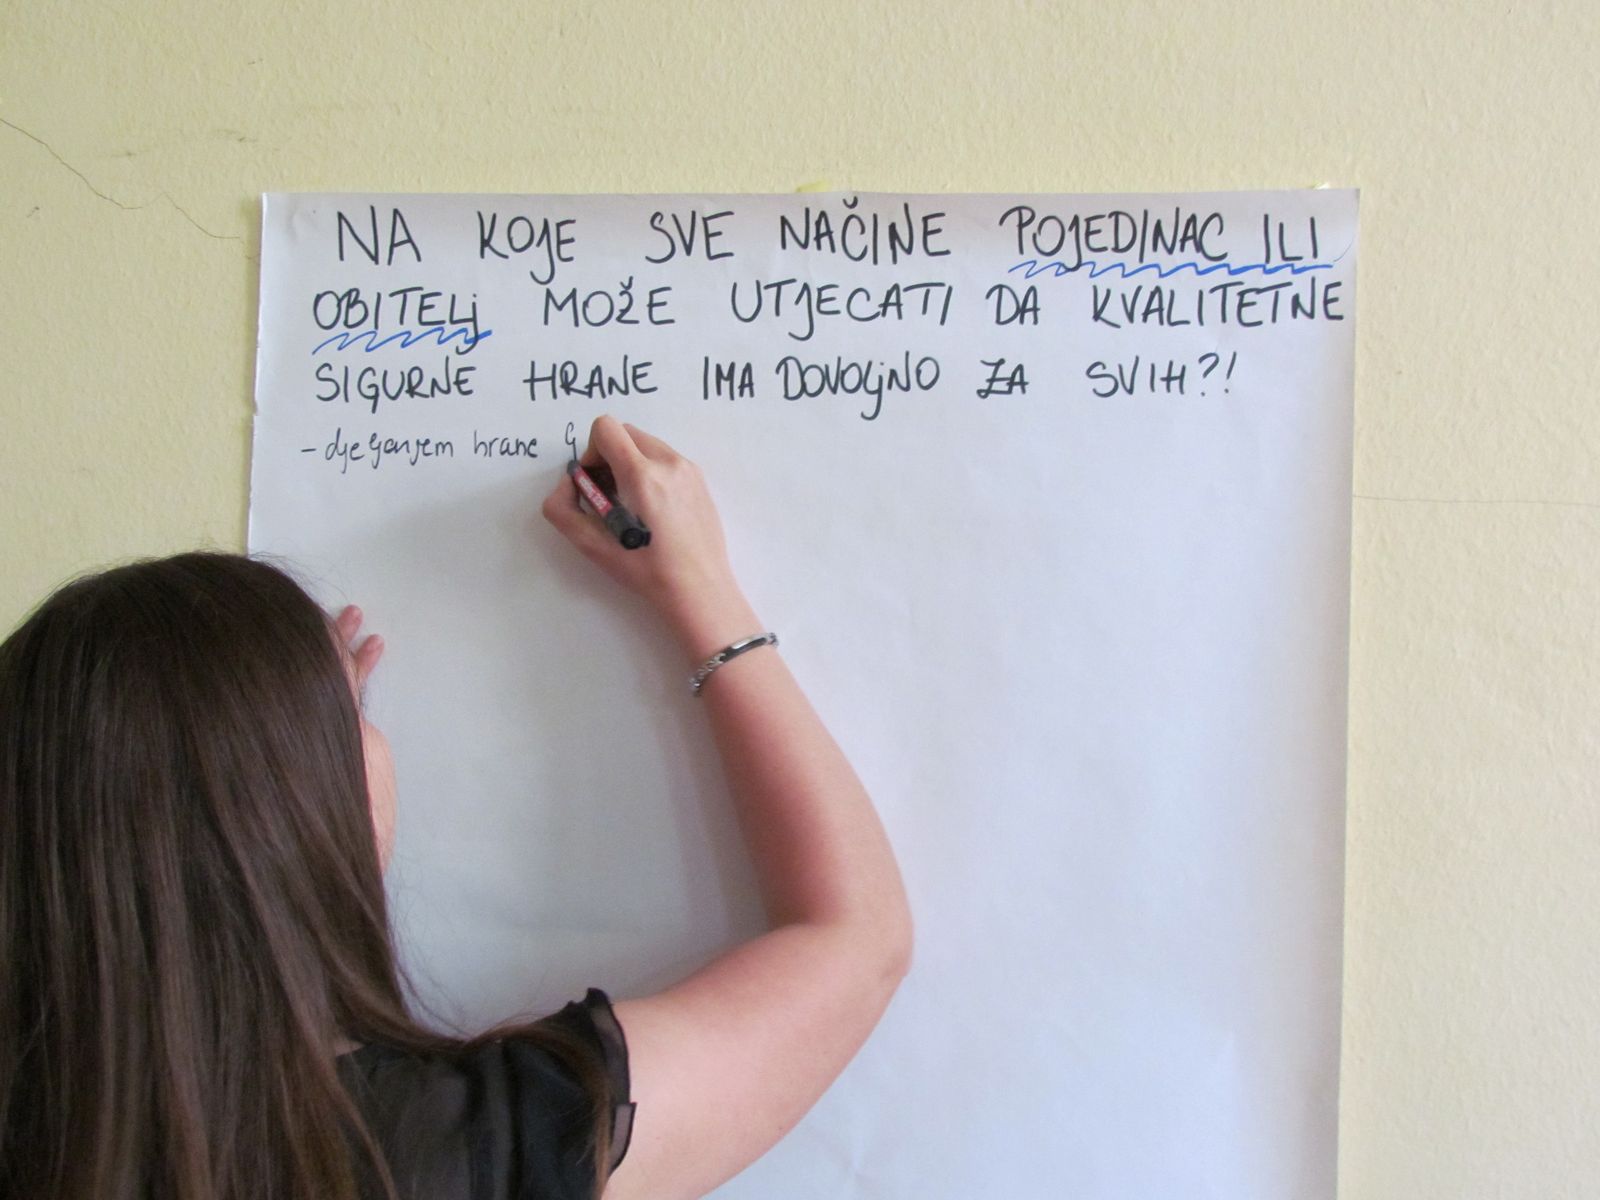 NA KOJE SVE NAČINE POJEDINAC ILI
OBITELj MOŽE UTJECATI DA KVALITETNE
SIGURNE HRANE IMA DOVOLjNO ZA SVIH?!
- djeljenjem hrane